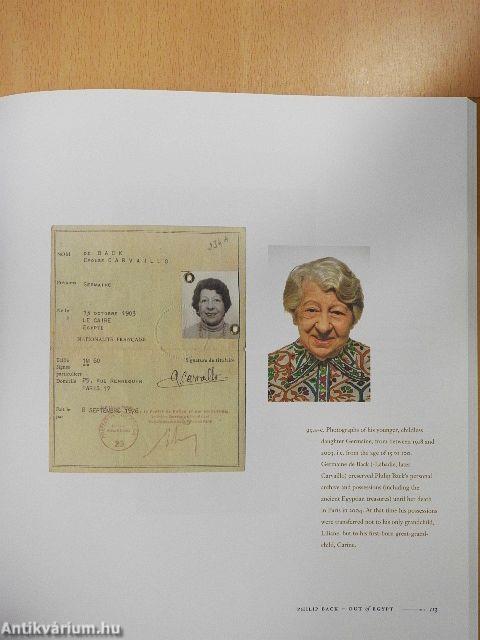 234 A
NOM DE BACK
Epouse CARVAILLO
Prénoms GERMAINE
Né le 13 OCTOBRE 1903
à LE CAIRE
EGYPTE
NATIONALITÉ FRANÇAISE
Taille 1M 60
Signes
particuliers
Signature du titulaire
Domicile 25, RUE RENNEQUIN
PARIS 17
Fait le 8 SEPTEMBRE 1976
par
G Carvallo
23
Photographs of his younger, childless
daughter Germaine, from between 1918 and
2003, i.e. from the age of 15 to 100.
Germaine de Back (-Labadie, later
Carvallo) preserved Philip Back's personal
archive and possessions (including the
ancient Egyptian treasures) until her death
in Paris in 2004. At that time his possessions
were transferred not to his only grandchild,
Liliane, but to his first-born great-grand-
child, Carine.
PHILIP BACK – OUT of EGYPT 113
Antikvárium.hu